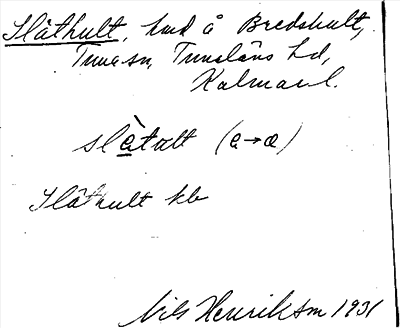 Slåthult, hmd å Bredshult,
Tuna sn, Tunaläns hd,
Kalmar l.
slàtolt (a→a)
Slåthult kb
Nils Henrikson 1931